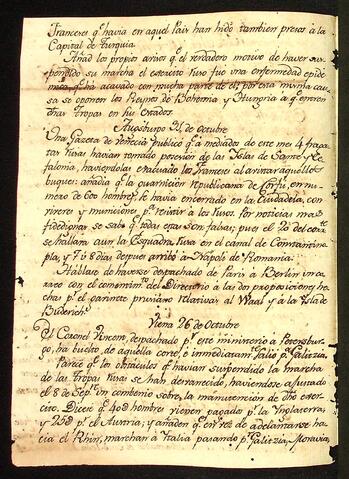 Franceses q.e havia en aquel Pais han hido tambien presos a la
Capital de Turquia.
Añad los propios avisos q.e el verdadero motivo de haver sus-
pendido su marcha el exercito ruso fue una enfermedad epide-
mica q.e ha acavado con mucha parte de el; por esta misma cau-
sa se oponen los Reynos de Bohemia y Hungria a q.e entren
otras tropas en sus estados.
Augsburgo 21 de Octubre
Una Gazeta de Venecia publico q.e a mediados de este mes 4 fraga-
tas rusas havian tomado posesion de las Islas de Sante y Ce-
falonia, haviendolas evacuado los franceses al avistar aquellos
buques: añadia q.e la guarnicion republicana de Corfu, en nu-
mero de 600 hombres, se havia encerrado en la Ciudadela, con
viveres y municiones p.a resistir a los rusos. Por noticias mas
fidedignas se sabe q.e todas estas son falsas; pues el 20 del cor.te
se hallava aun la Esquadra rusa en el canal de Constantino-
pla, y 7 u 8 dias despues arribò a Napols de Romania.
Hablase de haverse despachado de Paris à Berlin un ex-
preso con el consentim.to del Directorio a las dos proposiciones
hechas p.r el gavinete prusiano relativas al Waal y à la Ysla de
Buderich.
Viena 26 de Octubre
El Coronel Vincent, despachado p.r este ministerio a Petersbur-
go, ha buelto de aquella corte, e inmediatam.te salió p.a Galitzia.
Parece q.e los obstaculos q.e havian suspendido la marcha
de las tropas rusas se han desvanecido, haviendose ajustado
el 8 de Sep.re un combenio sobre la manutencion de dho exer-
cito. Dicese q.e 40@ hombres vienen pagados p.r la Ynglaterra
y 25@ p.r el Austria; y añaden q.e en vez de adelantarse ha-
cia el Rhin, marchan à Italia pasando p.r Galitzia, Moravia,